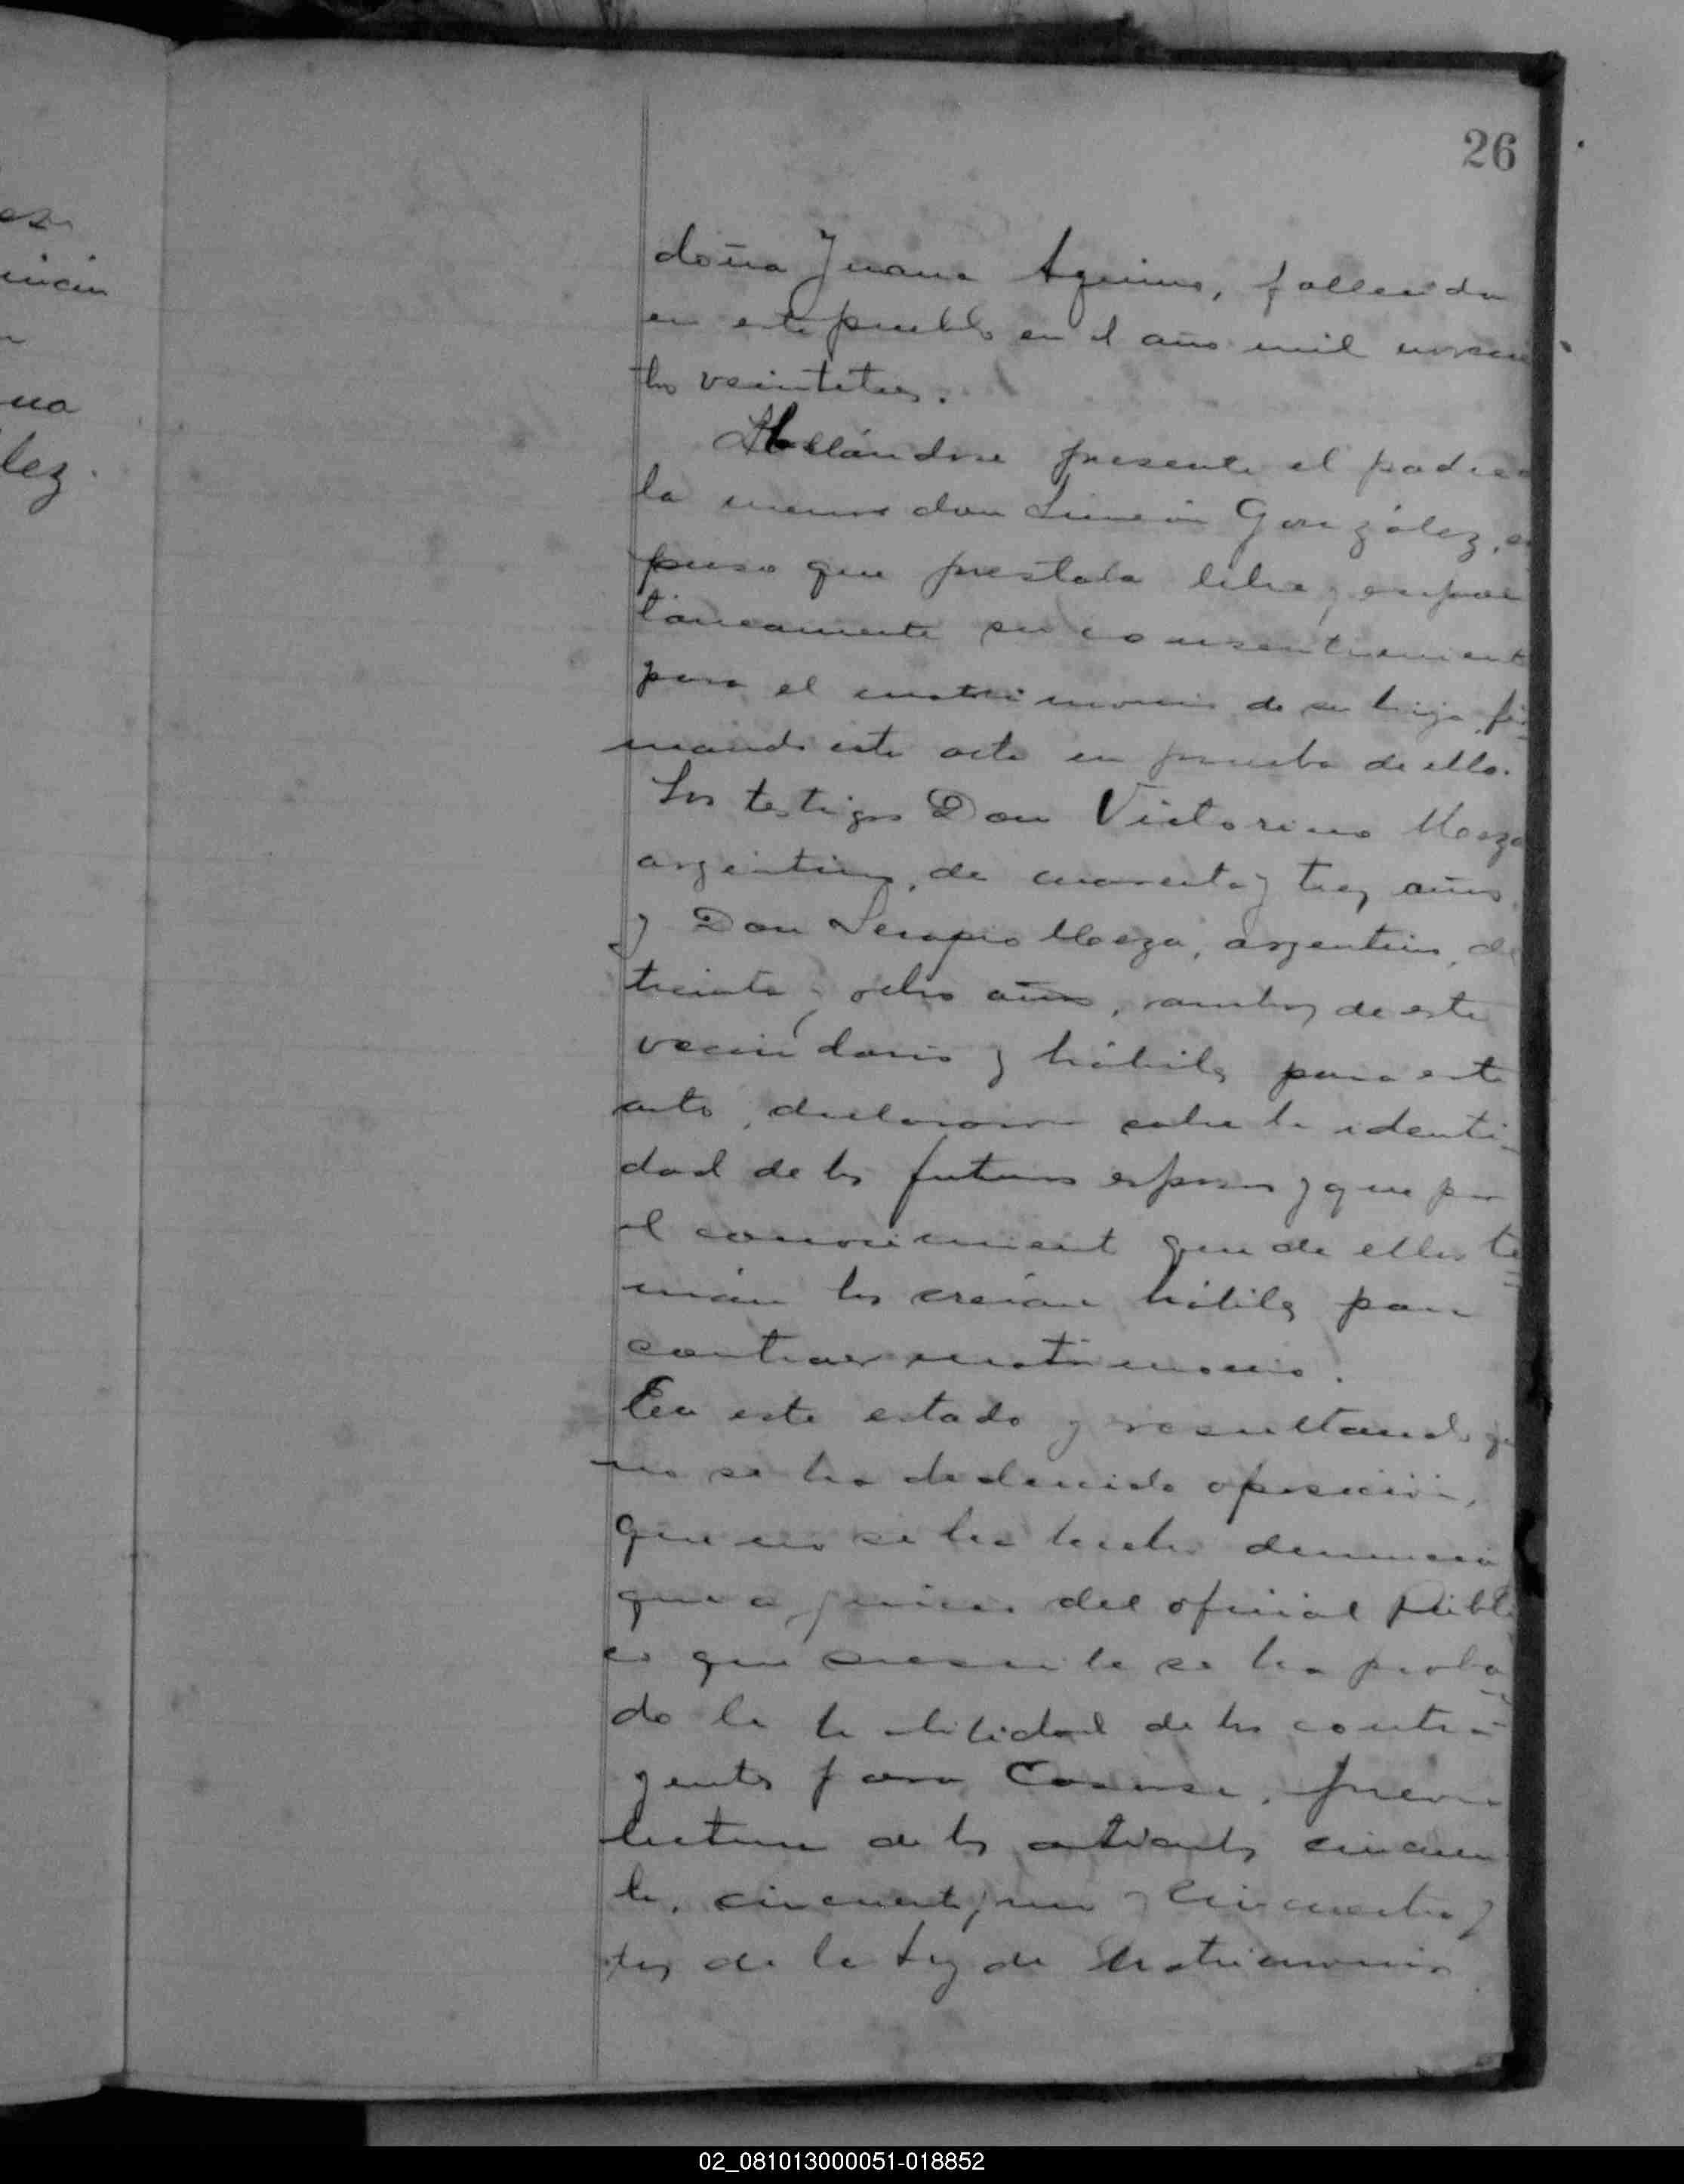 26
doña Juana Aquino, fallecida
en este pueblo en el año mil novecien
tos veintitres.
Hallándose presente el padre
la menor don Simeón González, ex
puso que prestaba libre y espon
táneamente su consentimient
para el matrimonio de su hija, fir
mando este acta en prueba de ello.
Los testigos Don Victorino Meza
argentino, de cuarenta y tres años
y Don Serapio Meza, argentino, de
treinta y ocho años, ambos de este
vecindario y hábiles para este
acto, declararon sobre la identi
dad de los futuros esposos y que por
el conocimient que de ellos te
nían los creían hábiles para
contraer matrimonio.
En este estado y resultando que
no se ha deducido oposición,
que no se ha hecho denuncia
que a juicio del oficial Públi
co que suscribe se ha proba
do la habilidad de los contra
yentes para casarse, previa
lectura de los artículos cincuen
ta, cincuenta y uno y cincuenta y
tres de la Ley de Matrimonio
es
ncia
na
lez.
02_081013000051-018852